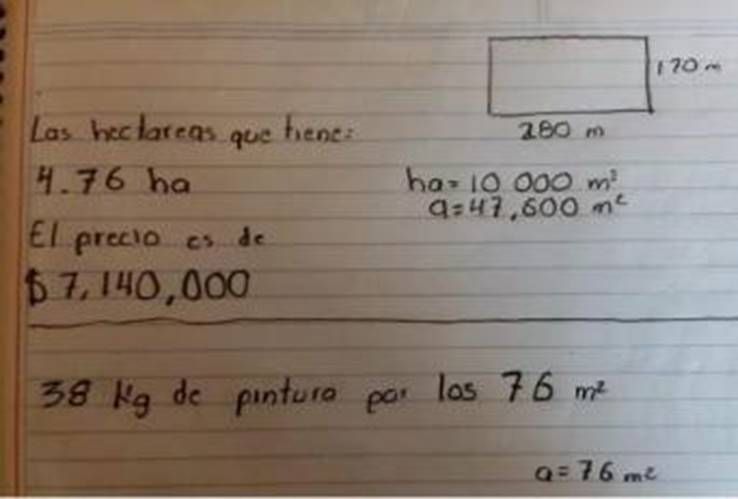 170 m
280 m
Las hectareas que tiene:
4.76 ha
ha= 10 000 m²
a=47,600 m²
El precio es de
$7,140,000
38 Kg de pintura por los 76 m²
a=76 m²